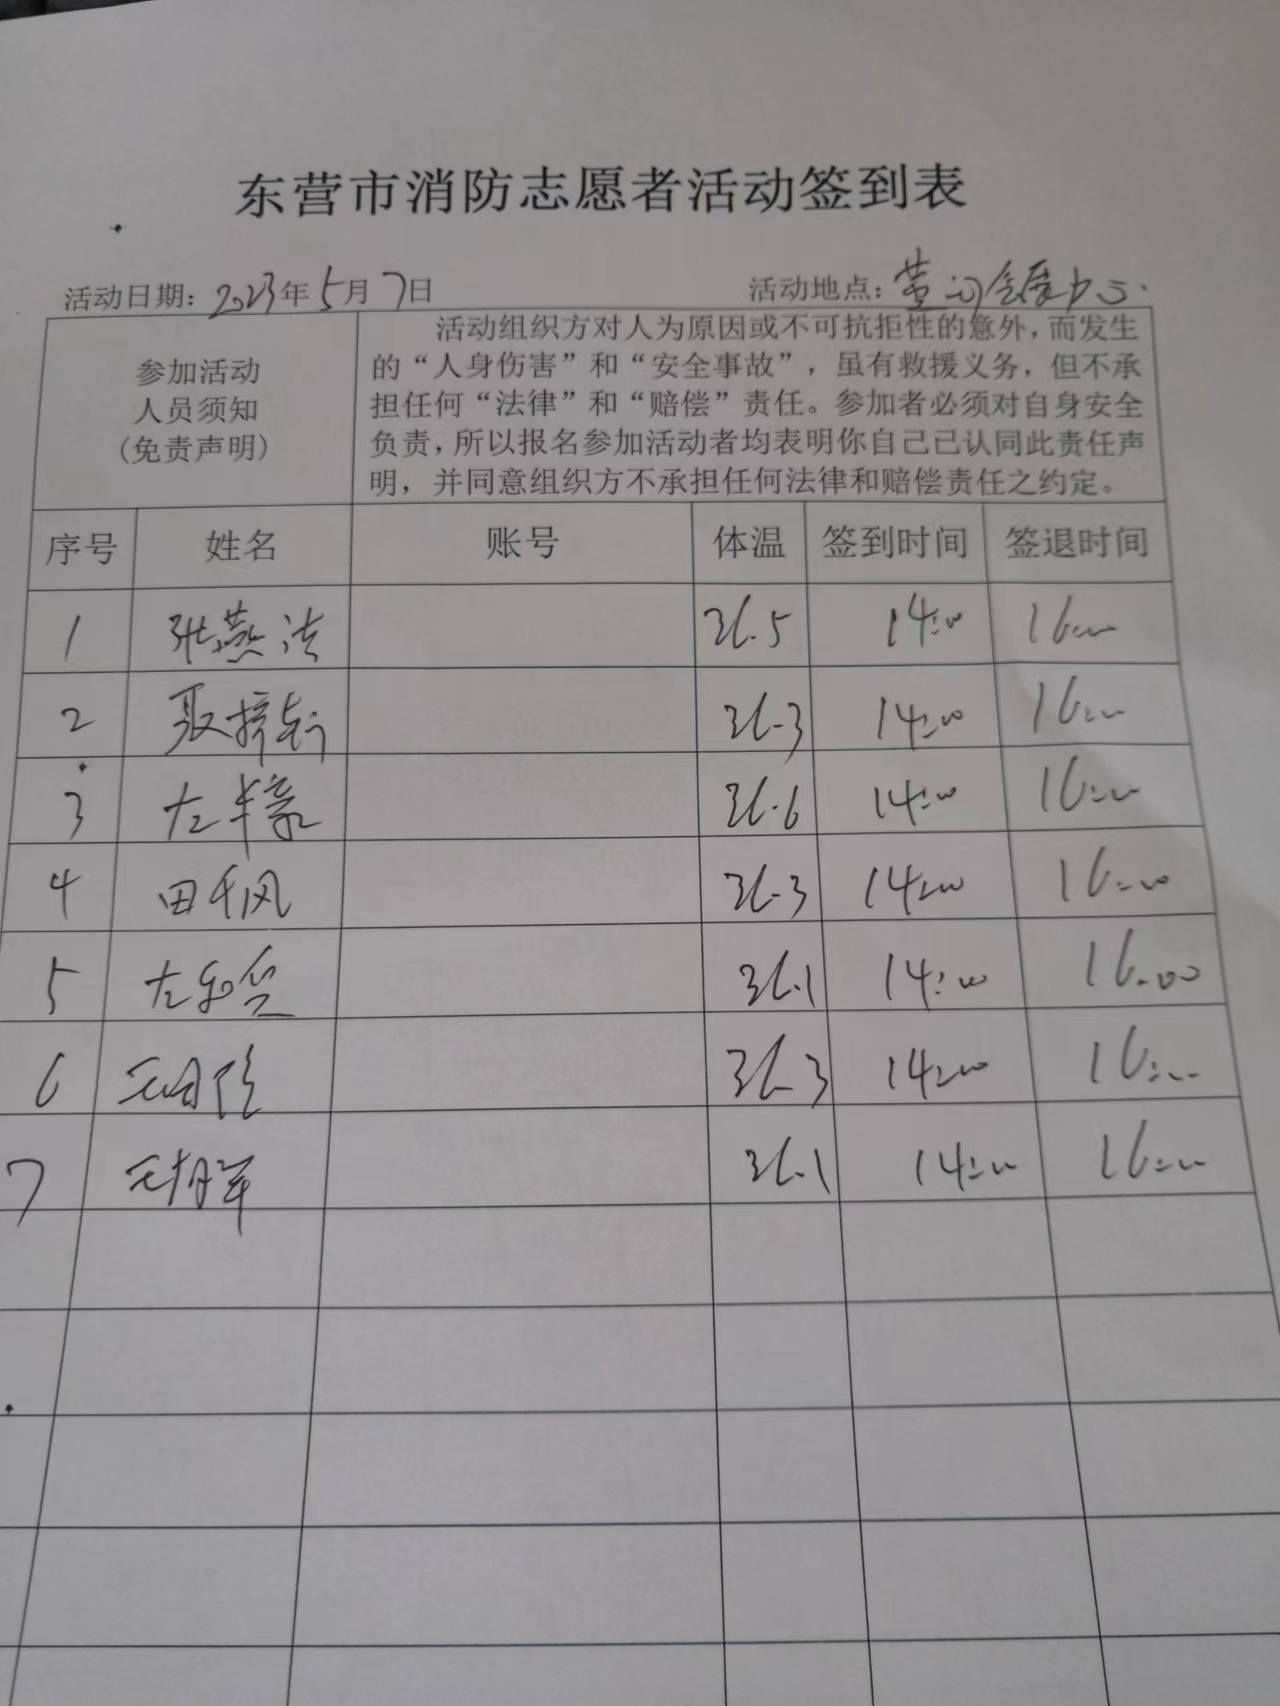 东营市消防志愿者活动签到表
活动日期：2023年5月7日 活动地点：黄河会展中心
参加活动
人员须知
(免责声明)
活动组织方对人为原因或不可抗拒性的意外，而发生
的“人身伤害”和“安全事故”，虽有救援义务，但不承
担任何“法律”和“赔偿”责任。参加者必须对自身安全
负责，所以报名参加活动者均表明你自己已认同此责任声
明，并同意组织方不承担任何法律和赔偿责任之约定。
序号 姓名 账号 体温 签到时间 签退时间
1 张燕 36.5 14:00 16:00
2 聂 36.3 14:00 16:00
3 左 36.6 14:00 16:00
4 田千风 36.3 14:00 16:00
5 左 36.1 14:00 16:00
6 36.3 14:00 16:00
7 36.1 14:00 16:00